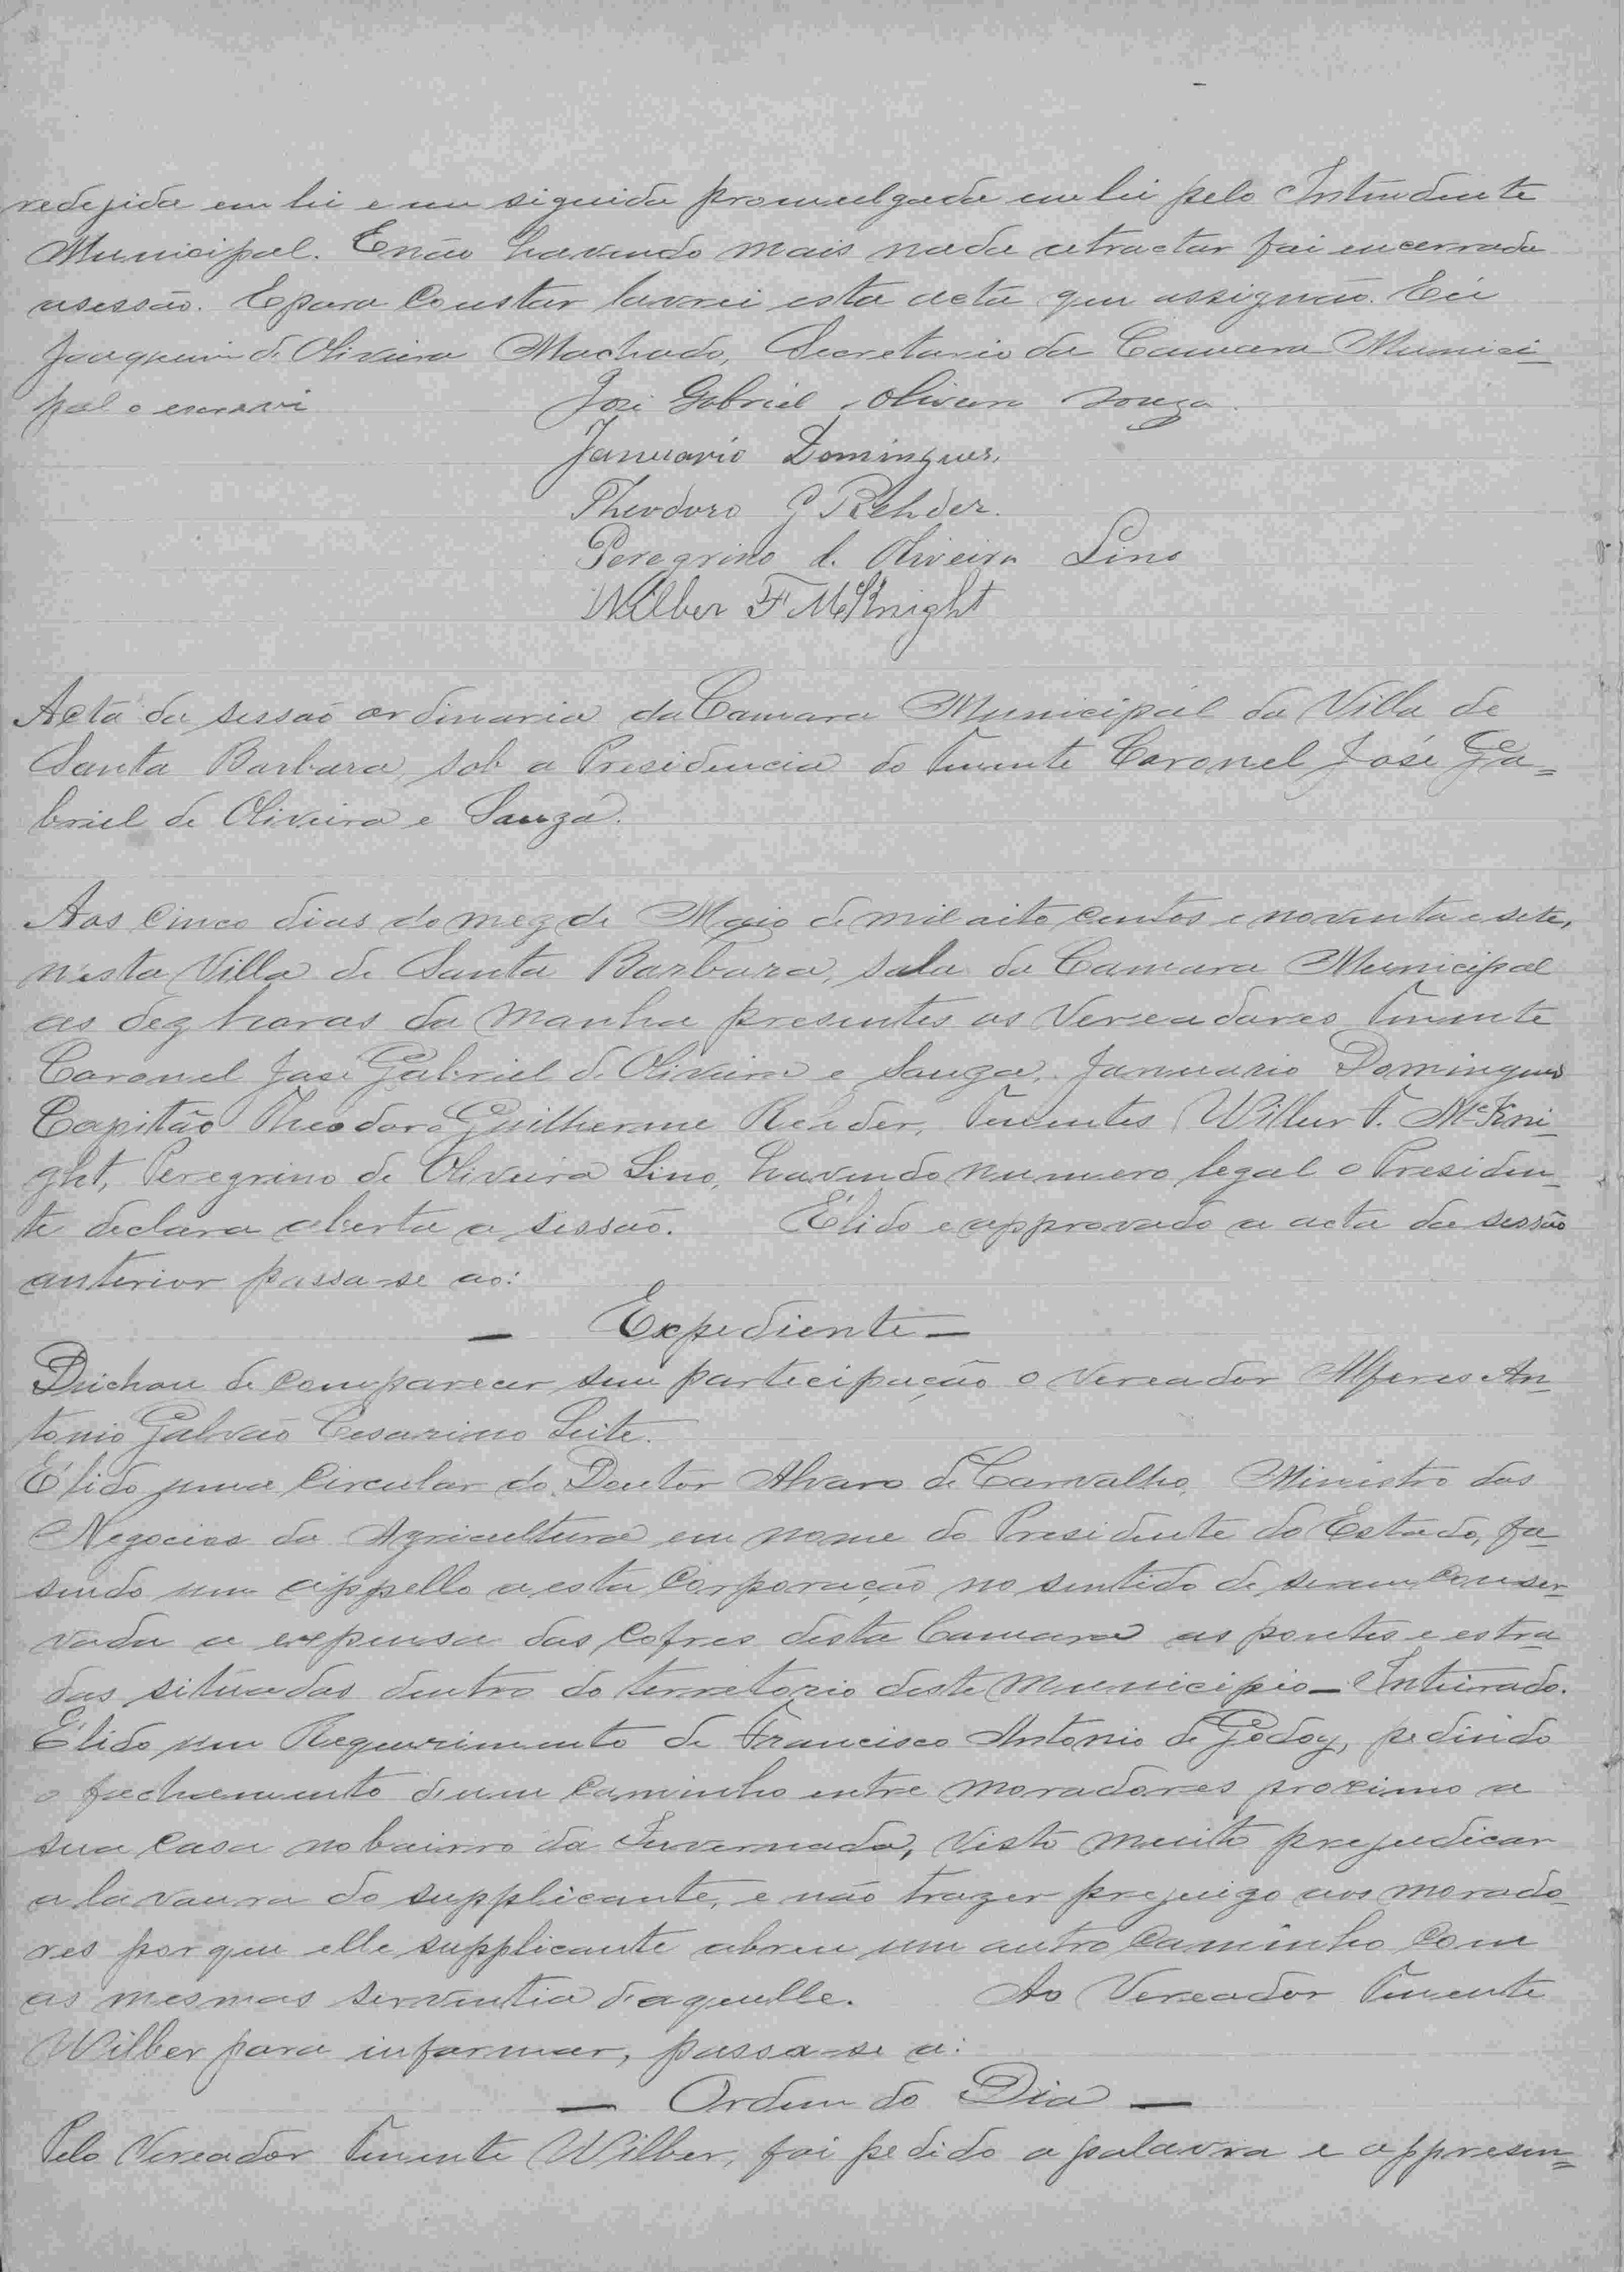 redejida em lei e em siguida promulgada em lei pelo Intendente
Municipal. E não havendo mais nada a tractar foi encerrada
a sessão. E para Constar lavrei esta acta que assignão. Eu
Joaquim de Oliveira Machado, Secretario da Camara Munici-
pal o escrevi José Gabriel e Oliveira Souza.
Januario Domingues.
Theodoro G Rehder.
Peregrino de Oliveira Lino
Wilber F McKnight
Acta da sessão ordinaria da Camara Municipal da Villa de
Santa Barbara, sob a Presidencia do Tenente Coronel José Ga=
briel de Oliveira e Souza.
Aos Cinco dias do mez de Maio de mil oito centos e noventa e sete,
nesta Villa de Santa Barbara, sala da Camara Municipal
as dez horas da manha presentes os Vereadores Tenente
Coronel José Gabriel de Oliveira e Souza, Januario Domingues
Capitão Theodoro Guilherme Rehder, Tenentes Wilber F. McKni-
ght, Peregrino de Oliveira Lino, havendo numero legal o Presiden-
te declara aberta a sessão. É lido e approvado a acta da sessão
anterior passa-se ao:
— Expediente —
Deichou de Comparecer sem participação o Vereador Alferes An-
tonio Galvão Cesarino Leite.
É lido uma Circular do Doutor Alvaro de Carvalho, Ministro dos
Negocios da Agricultura em nome do Presidente do Estado, fa-
sendo um appello a esta Corporação no sentido de serem Conser-
vada a expensa dos Cofres desta Camara as pontes e estra
das situadas dentro do territorio deste Municipio — Inteirado.
É lido um Requerimento de Francisco Antonio de Godoy, pedindo
o fechamento de um Caminho entre moradores proximo a
sua Casa no bairro da Invernada, visto muito prejudicar
a lavoura do supplicante, e não trazer prejuizo aos morado-
res por que elle supplicante abreu um outro Caminho Com
as mesmas serventia d'aquelle. Ao Vereador Tenente
Wilber para informar, passa-se a:
— Ordem do Dia —
Pelo Vereador Tenente Wilber, foi pedido a palavra e appresen=